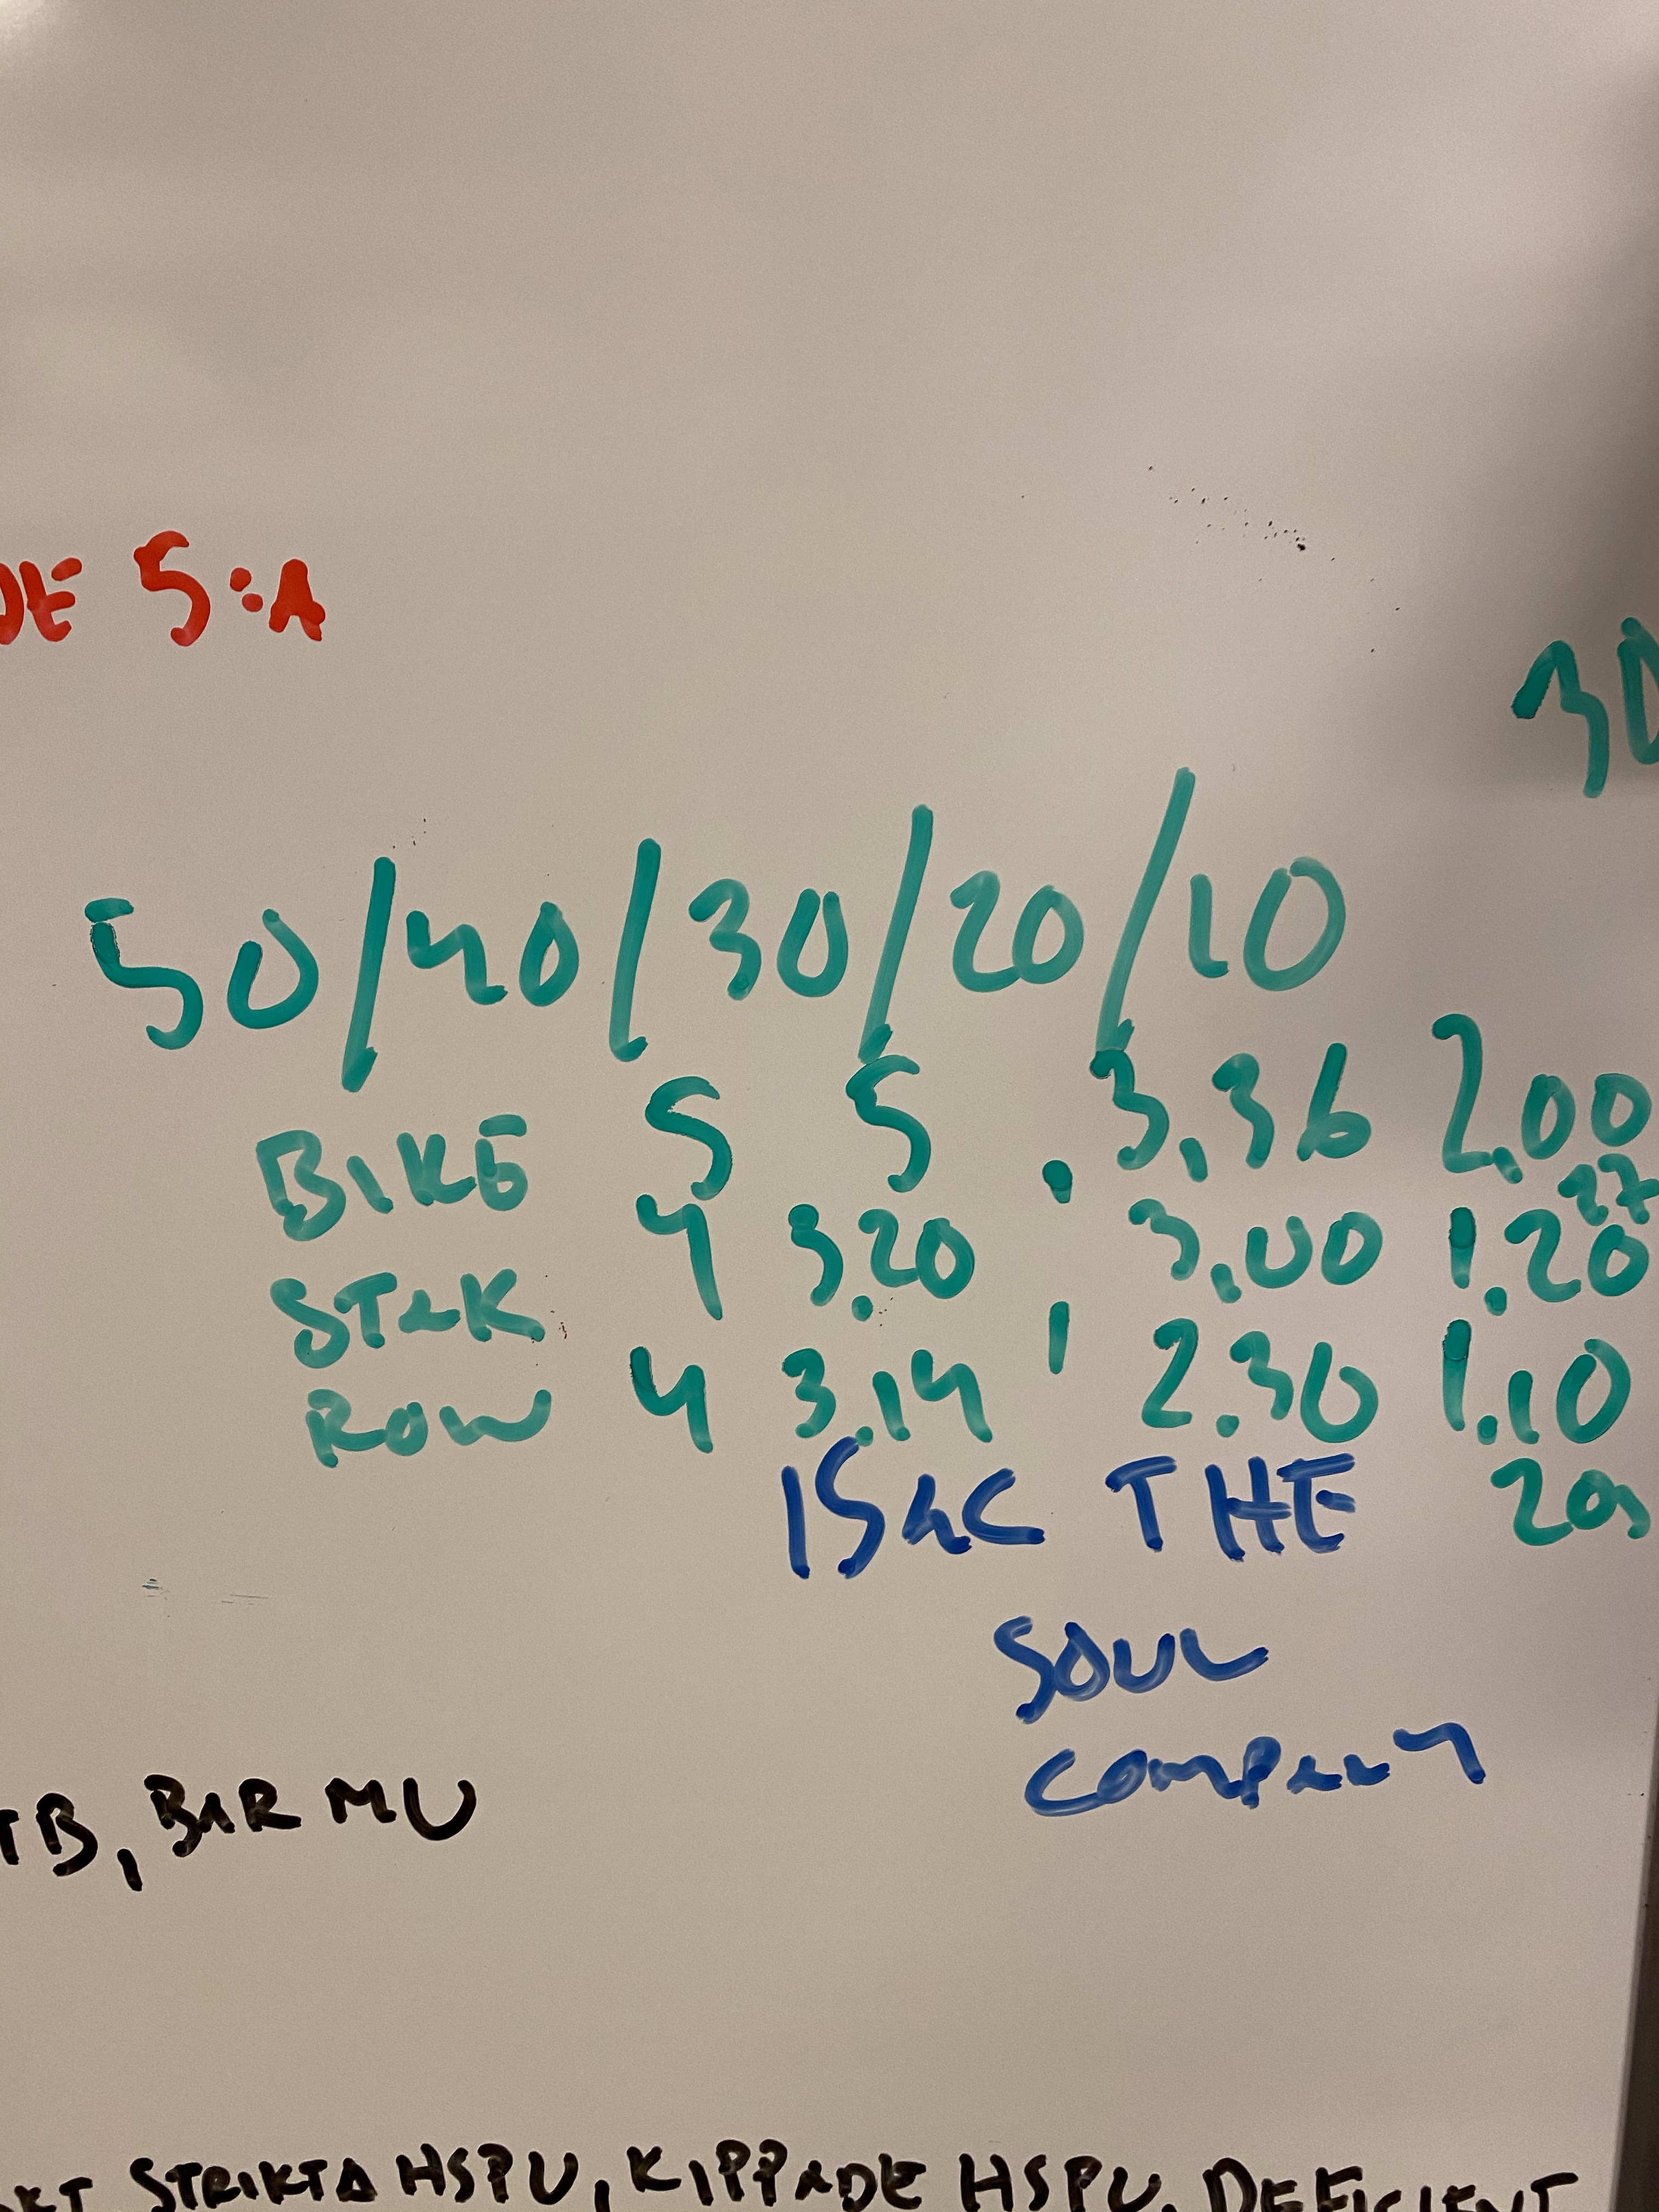 5:A
30
50/40/30/20/10
BIKE 5 5 . 3,36 2,00
27
STAK 4 3.20 3,00 1.20
ROW 4 3.14 ' 2.30 1.10
ISAC THE 20s
SOUL
COMPANY
TB, BAR MU
STRIKTA HSPU, KIPPADE HSPU, DEFICIENT